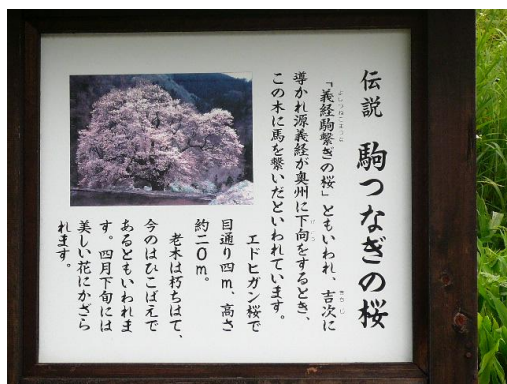 伝説 駒つなぎの桜
「義経駒繋ぎの桜」ともいわれ、吉次に
導かれ源義経が奥州に下向をするとき、
この木に馬を繋いだといわれています。
エドヒガン桜で
目通り四m、高さ
約二〇m。
老木は朽ちはて、
今のはひこばえで
あるともいわれま
す。四月下旬には
美しい花にかざら
れます。